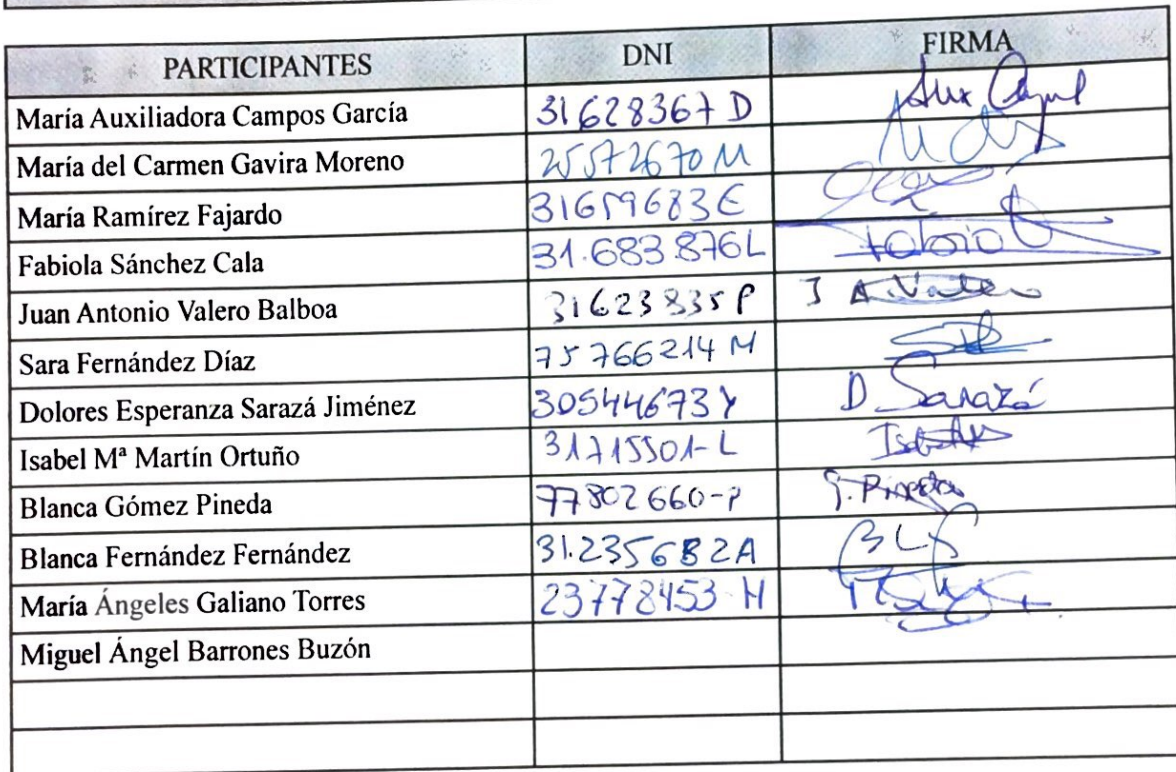 PARTICIPANTES DNI FIRMA
María Auxiliadora Campos García 31628367D Aux Campos
María del Carmen Gavira Moreno 25572670M
María Ramírez Fajardo 31659683E
Fabiola Sánchez Cala 31.683.876L Fabiola
Juan Antonio Valero Balboa 31623835P J A. Valero
Sara Fernández Díaz 75766214M
Dolores Esperanza Sarazá Jiménez 30544673Y D Sarazá
Isabel Mª Martín Ortuño 31715501-L Isabel
Blanca Gómez Pineda 77802660-P G. Pineda
Blanca Fernández Fernández 31.235682A
María Ángeles Galiano Torres 23778453-H
Miguel Ángel Barrones Buzón